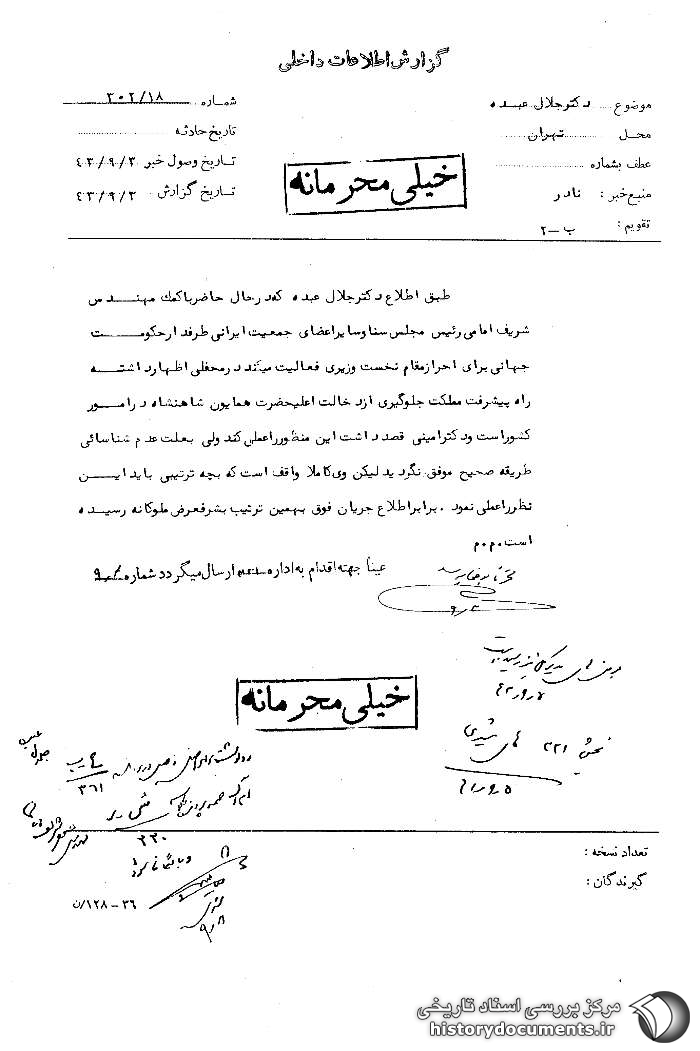 گزارش اطلاعات داخلی
موضوع دکتر جلال عبده
شماره ۳۰۲/۱۸
محل تهران
تاریخ حادثه
عطف بشماره
تاریخ وصول خبر ۴۳/۹/۲
منبع خبر : نادر
تاریخ گزارش ۴۳/۹/۲
تقویم : ب-۲
خیلی محرمانه
طبق اطلاع دکتر جلال عبده که در حال حاضر باکمک مهندس
شریف امامی رئیس مجلس سنا و سایر اعضای جمعیت ایرانی طرفدار حکومت
جهانی برای احراز مقام نخست وزیری فعالیت میکند در محفلی اظهار داشته
راه پیشرفت مملکت جلوگیری از دخالت اعلیحضرت همایون شاهنشاه در امور
کشور است و دکتر امینی قصد داشت این منظور را عملی کند ولی بعلت عدم شناسائی
طریقه صحیح موفق نگردید لیکن وی کاملا واقف است که بچه ترتیبی باید این
نظر را عملی نمود . برابر اطلاع جریان فوق بهمین ترتیب بشرفعرض ملوکانه رسیده
است . م . م
عینا جهته اقدام به اداره ارسال میگردد شماره
خیلی محرمانه
بخش ۲۲۱
۳۶۱
۳۳۰
تعداد نسخه :
گیرندگان :
۳۶-۱۲۸/ن
مرکز بررسی اسناد تاریخی
historydocuments.ir